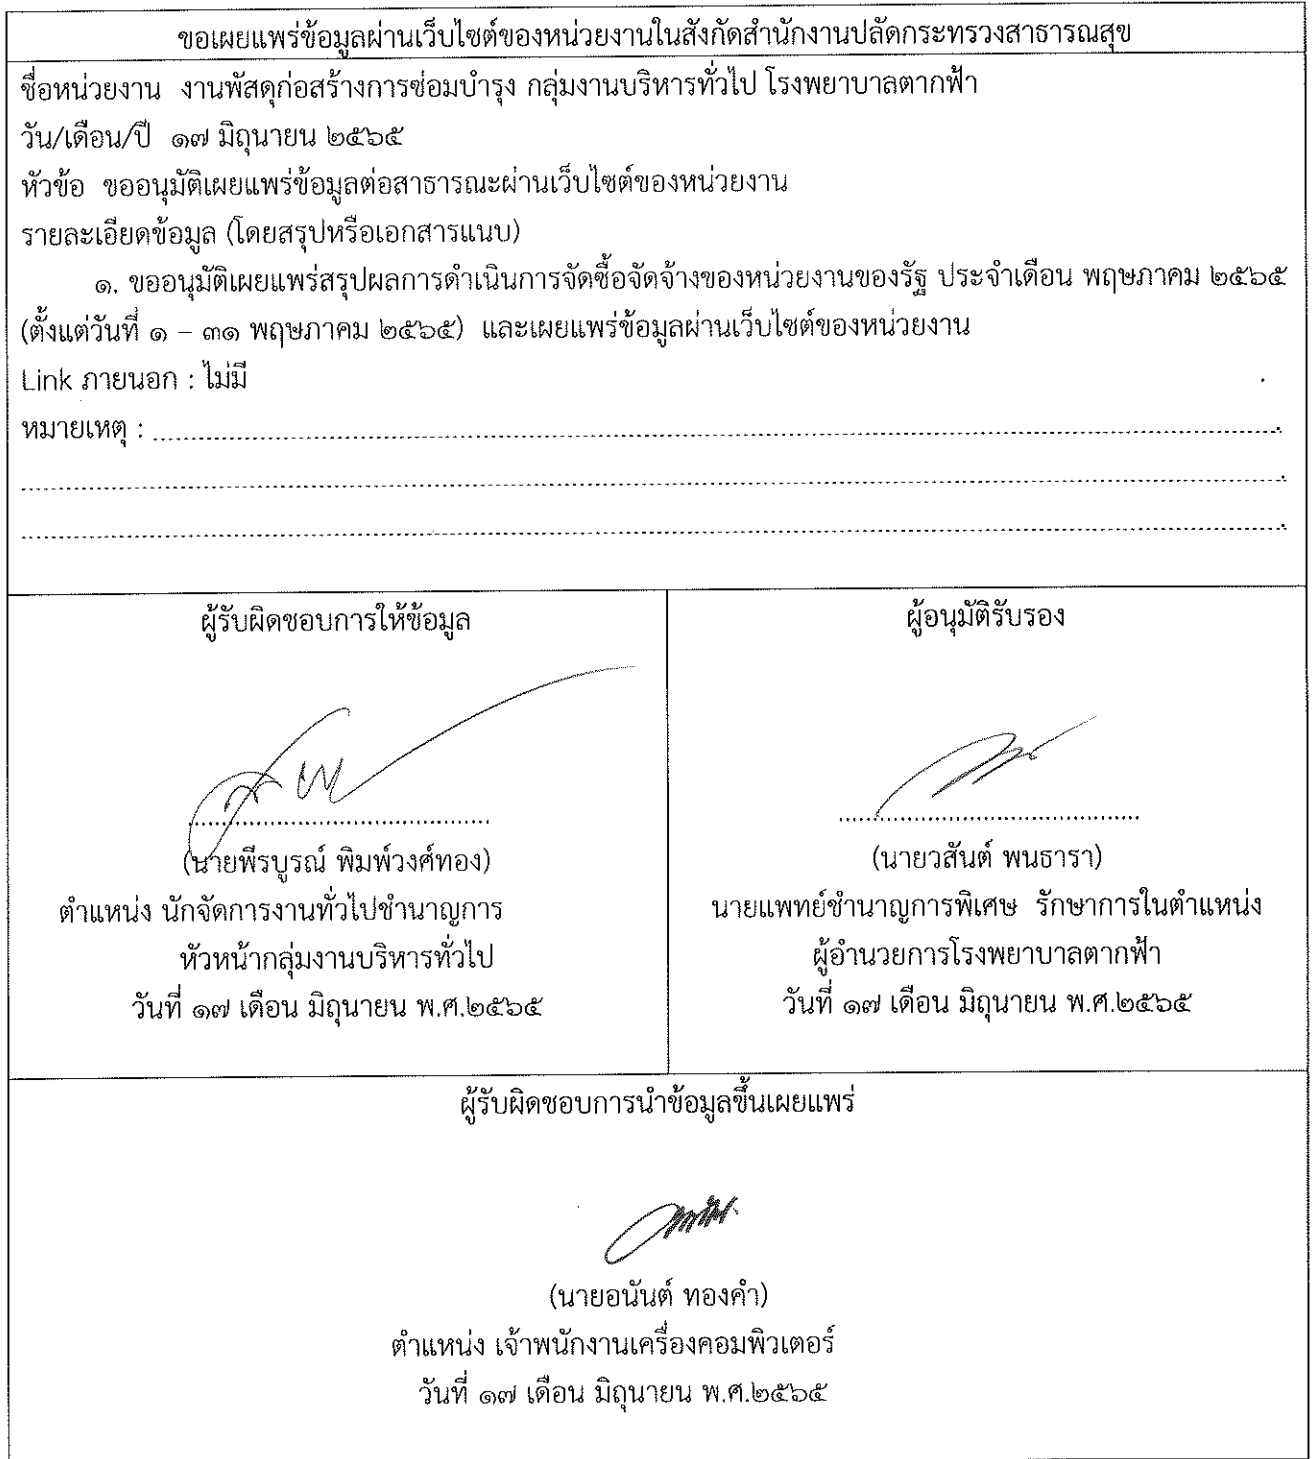 ขอเผยแพร่ข้อมูลผ่านเว็บไซต์ของหน่วยงานในสังกัดสำนักงานปลัดกระทรวงสาธารณสุข
ชื่อหน่วยงาน งานพัสดุก่อสร้างการซ่อมบำรุง กลุ่มงานบริหารทั่วไป โรงพยาบาลตากฟ้า
วัน/เดือน/ปี ๑๗ มิถุนายน ๒๕๖๕
หัวข้อ ขออนุมัติเผยแพร่ข้อมูลต่อสาธารณะผ่านเว็บไซต์ของหน่วยงาน
รายละเอียดข้อมูล (โดยสรุปหรือเอกสารแนบ)
๑. ขออนุมัติเผยแพร่สรุปผลการดำเนินการจัดซื้อจัดจ้างของหน่วยงานของรัฐ ประจำเดือน พฤษภาคม ๒๕๖๕
(ตั้งแต่วันที่ ๑ – ๓๑ พฤษภาคม ๒๕๖๕) และเผยแพร่ข้อมูลผ่านเว็บไซต์ของหน่วยงาน
Link ภายนอก : ไม่มี
หมายเหตุ :
ผู้รับผิดชอบการให้ข้อมูล
(นายพีรบูรณ์ พิมพ์วงศ์ทอง)
ตำแหน่ง นักจัดการงานทั่วไปชำนาญการ
หัวหน้ากลุ่มงานบริหารทั่วไป
วันที่ ๑๗ เดือน มิถุนายน พ.ศ.๒๕๖๕
ผู้อนุมัติรับรอง
(นายวสันต์ พนธารา)
นายแพทย์ชำนาญการพิเศษ รักษาการในตำแหน่ง
ผู้อำนวยการโรงพยาบาลตากฟ้า
วันที่ ๑๗ เดือน มิถุนายน พ.ศ.๒๕๖๕
ผู้รับผิดชอบการนำข้อมูลขึ้นเผยแพร่
(นายอนันต์ ทองคำ)
ตำแหน่ง เจ้าพนักงานเครื่องคอมพิวเตอร์
วันที่ ๑๗ เดือน มิถุนายน พ.ศ.๒๕๖๕